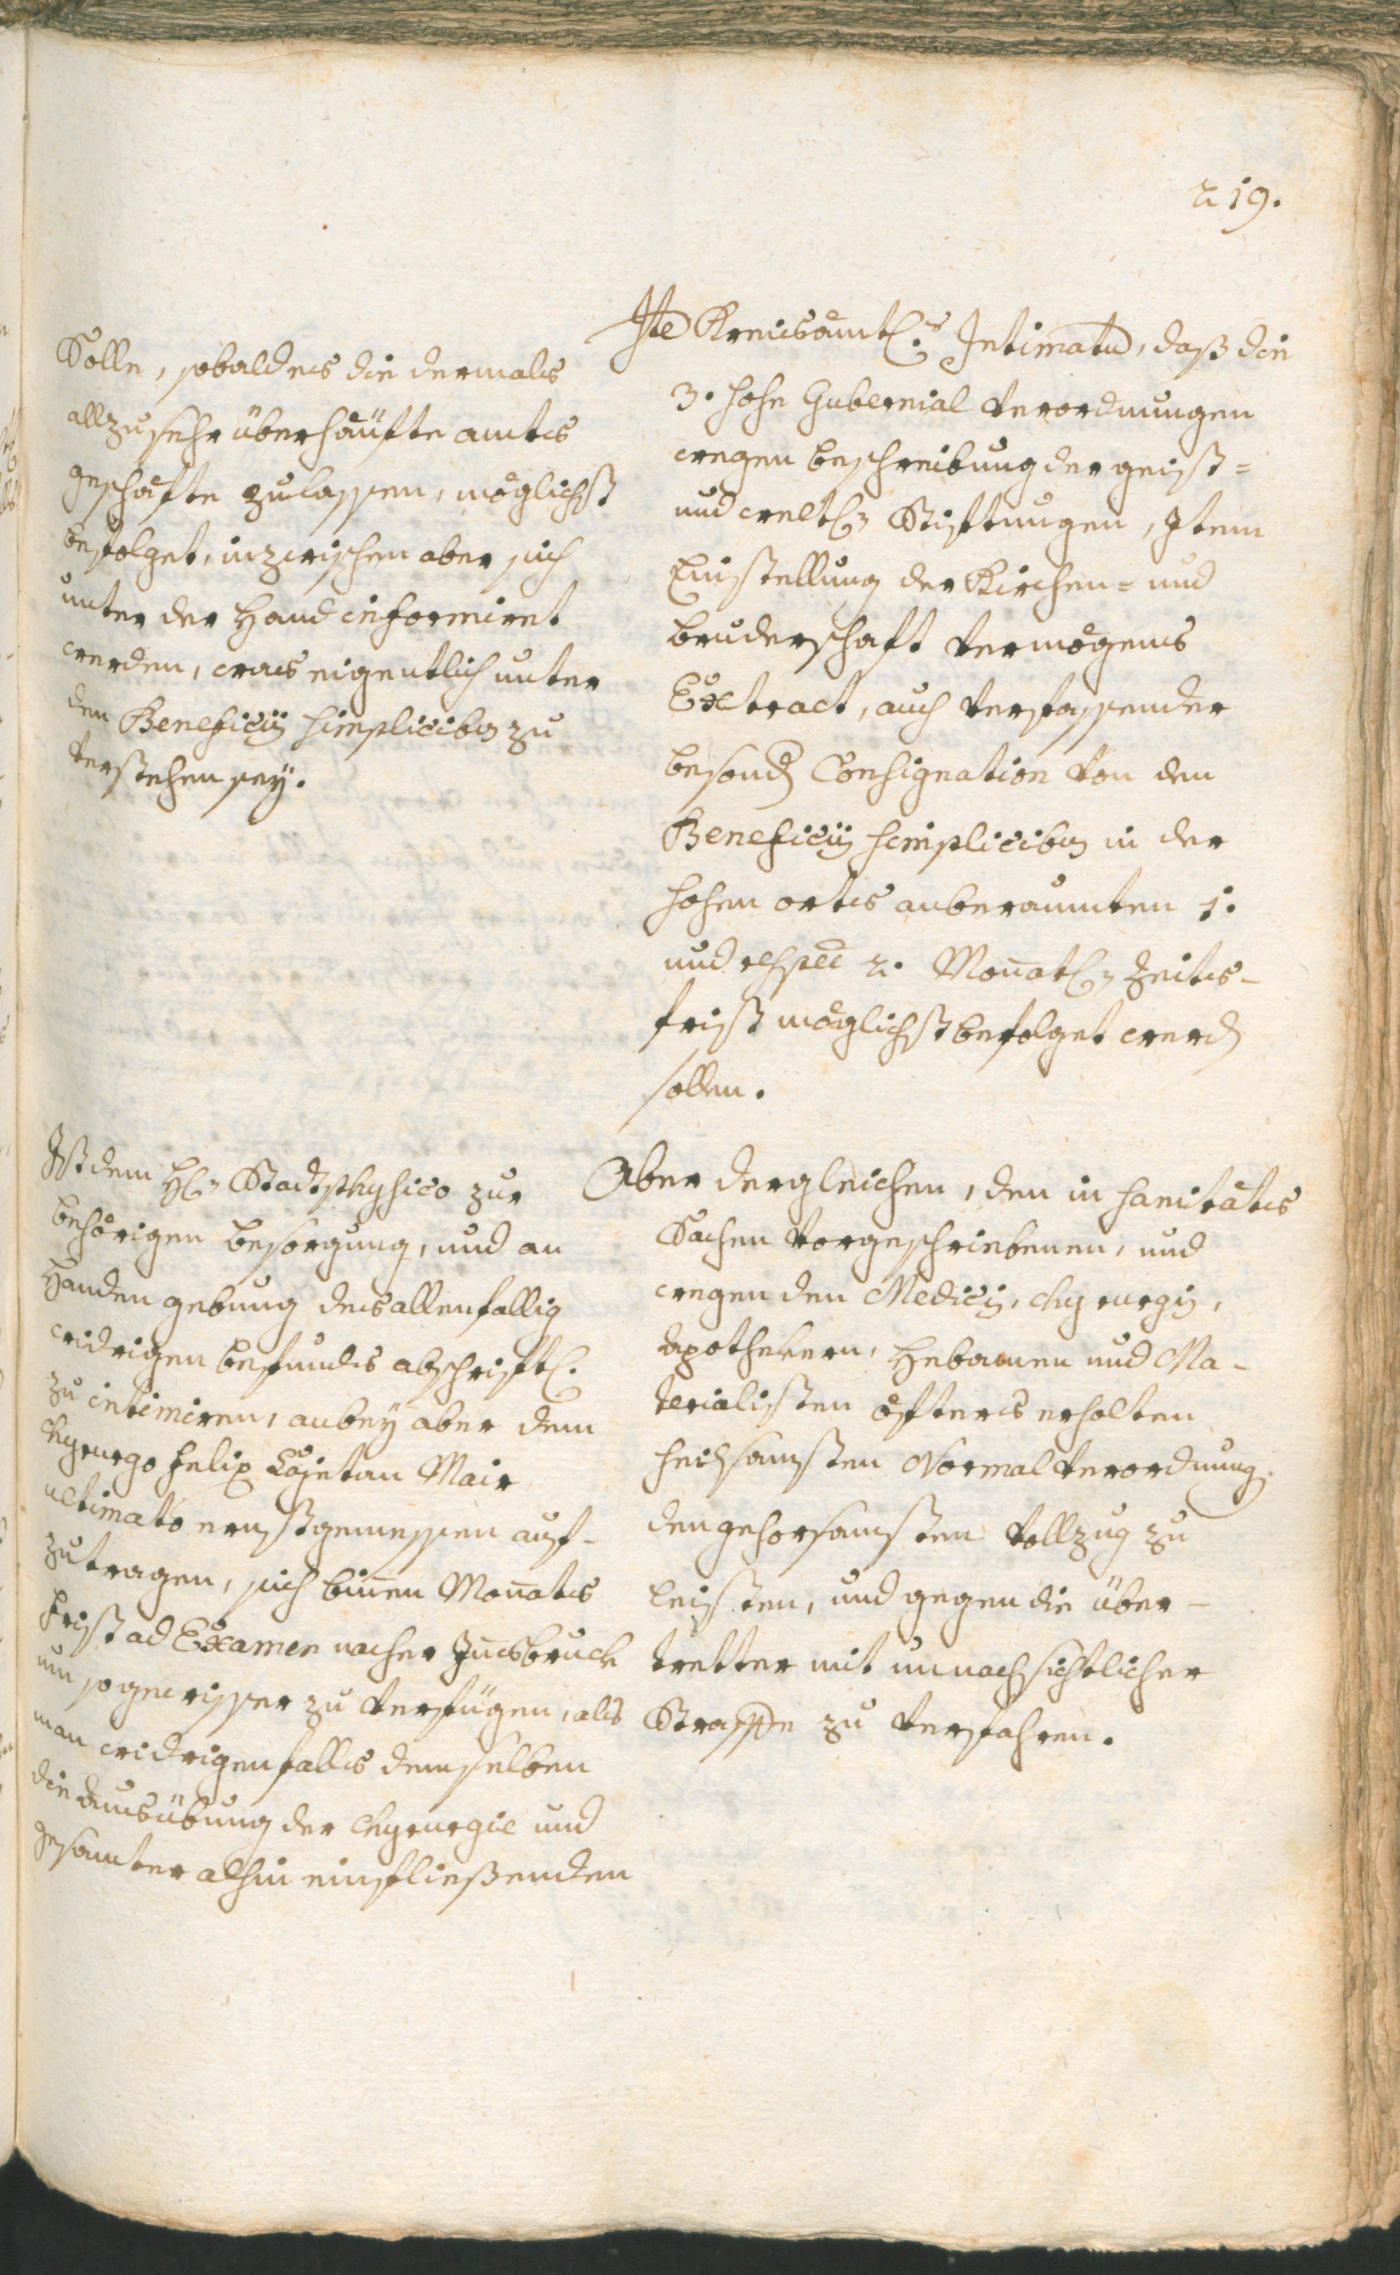 219.
Solle, sobald es die dermals
allzusehr überhäüfte amts
geschäfte zulassen, möglichst
befolget, inzwischen aber sich
unter der Hand informiret
werden, was eigentlich unter
den Beneficÿ simplicibus zu
verstehen seÿ.
Ite Kreisämtl.s Intimatum, daß die
3. hohe Gubernial Verordnungen
wegen beschreibung der geist=
und weltl. Stiftungen, Item
Einstellung der Kirchen= und
bruderschaft Vermögens
Extract, auch Verfassender
besond. Consignation von den
Beneficiis simplicibus in der
hohen orts anberaumten 1.
und respec 2. Monatl. Zeits-
frist möglichst befolget werd.
sollen.
Ist dem H. Stadtphysico zur
behörigen besorgung, und an
Handen gebung des allenfallig
widrigen befundes abschriftl.
zu intimiren, anbeÿ aber dem
Chyrurgo Felix Cajetan Mair
ultimato ernstgemessen auf-
zutragen, sich binnen Monats
Frist ad Examen nacher Innsbruck
um so gewisser zu verfügen, als
man widrigenfalls demselben
die ausübung der Chyrurgie und
gesamter alhin einfließenden
Aber dergleichen, den in sanitäts
Sachen vorgeschriebenen, und
wegen den Medicÿ, Chyrurgis,
Apothekern, Hebamen und Ma-
terialisten öfters erholten
heilsamsten Normalverordnung.
den gehorsamsten Vollzug zu
leisten, und gegen die über-
tretter mit unnachsichtlicher
Straffe zu verfahren.